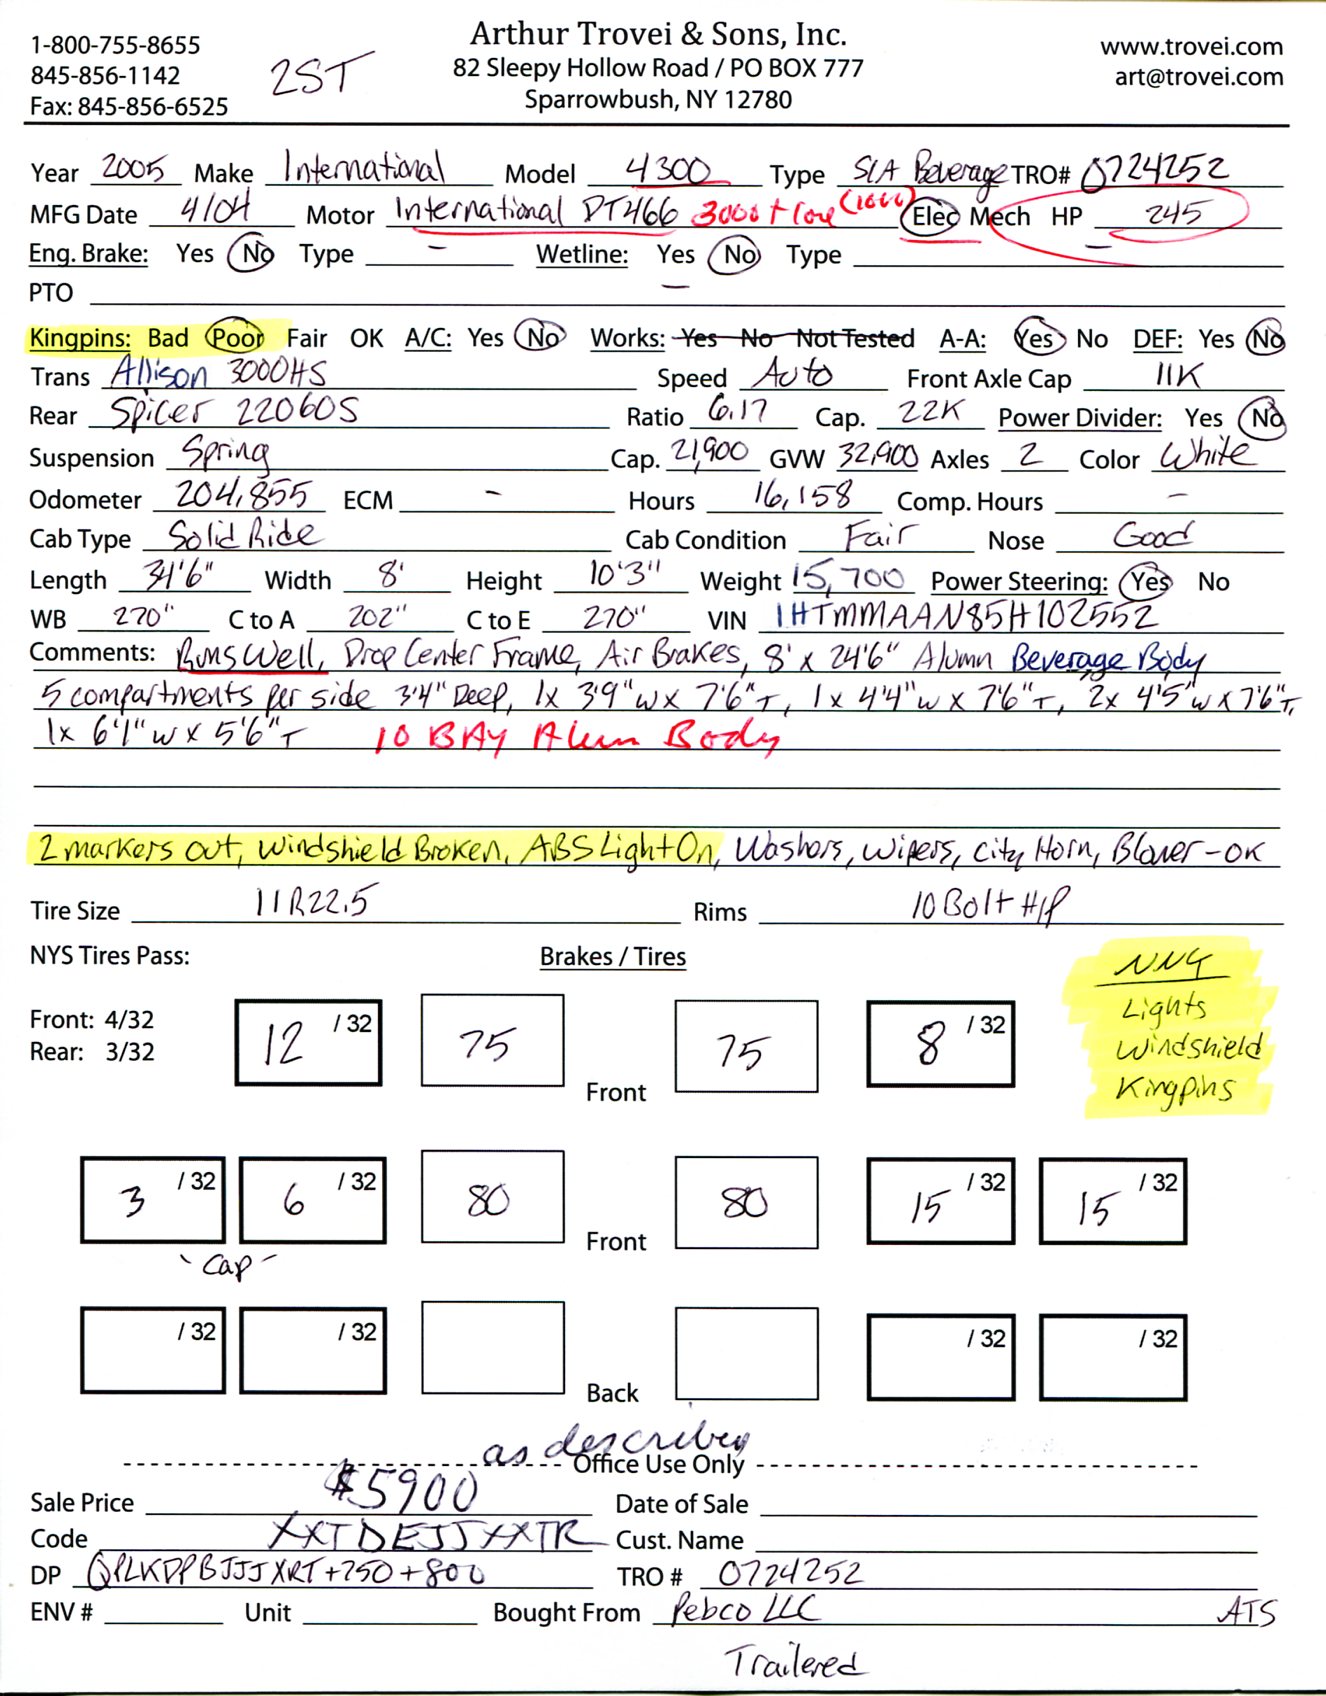 Arthur Trovei & Sons, Inc.
1-800-755-8655 www.trovei.com
82 Sleepy Hollow Road / PO BOX 777
845-856-1142 2ST art@trovei.com
Fax: 845-856-6525 Sparrowbush, NY 12780
Year 2005 Make International Model 4300 Type S/A Beverage TRO# 0724252
MFG Date 4/04 Motor International DT466 3000 + Low (1000) Elec Mech HP 245
Eng. Brake: Yes No Type - Wetline: Yes No Type -
PTO -
Kingpins: Bad Poor Fair OK A/C: Yes No Works: Yes No Not Tested A-A: Yes No DEF: Yes No
Trans Allison 3000HS Speed Auto Front Axle Cap 11K
Rear Spicer 22060S Ratio 6.17 Cap. 22K Power Divider: Yes No
Suspension Spring Cap. 21,900 GVW 32,900 Axles 2 Color White
Odometer 204,855 ECM - Hours 16,158 Comp. Hours -
Cab Type Solid Ride Cab Condition Fair Nose Good
Length 34'6" Width 8' Height 10'3" Weight 15,700 Power Steering: Yes No
WB 270" C to A 202" C to E 270" VIN 1HTMMAAN85H102552
Comments: Runs Well, Drop Center Frame, Air Brakes, 8' x 24'6" Alumn Beverage Body
5 compartments per side 3'4" Deep, 1x 3'9"w x 7'6"T, 1x 4'4"w x 7'6"T, 2x 4'5"w x 7'6"T,
1x 6'1"w x 5'6"T 10 BAy Alum Body
2 markers out, Windshield Broken, ABS Light On, Washers, Wipers, City Horn, Blower-OK
Tire Size 11R22.5 Rims 10 Bolt H/P
NYS Tires Pass: Brakes / Tires
NNG
Lights
Windshield
Kingpins
Front: 4/32
Rear: 3/32
12 /32 75 Front 75 8 /32
3 /32 6 /32 80 Front 80 15 /32 15 /32
-Cap-
/32 /32 Back /32 /32
as described
Office Use Only
Sale Price $5900 Date of Sale
Code XXTDEJJXXTR Cust. Name
DP QPLKDPBJJJXRT+250+800 TRO # 0724252
ENV # Unit Bought From Pebco LLC ATS
Trailered